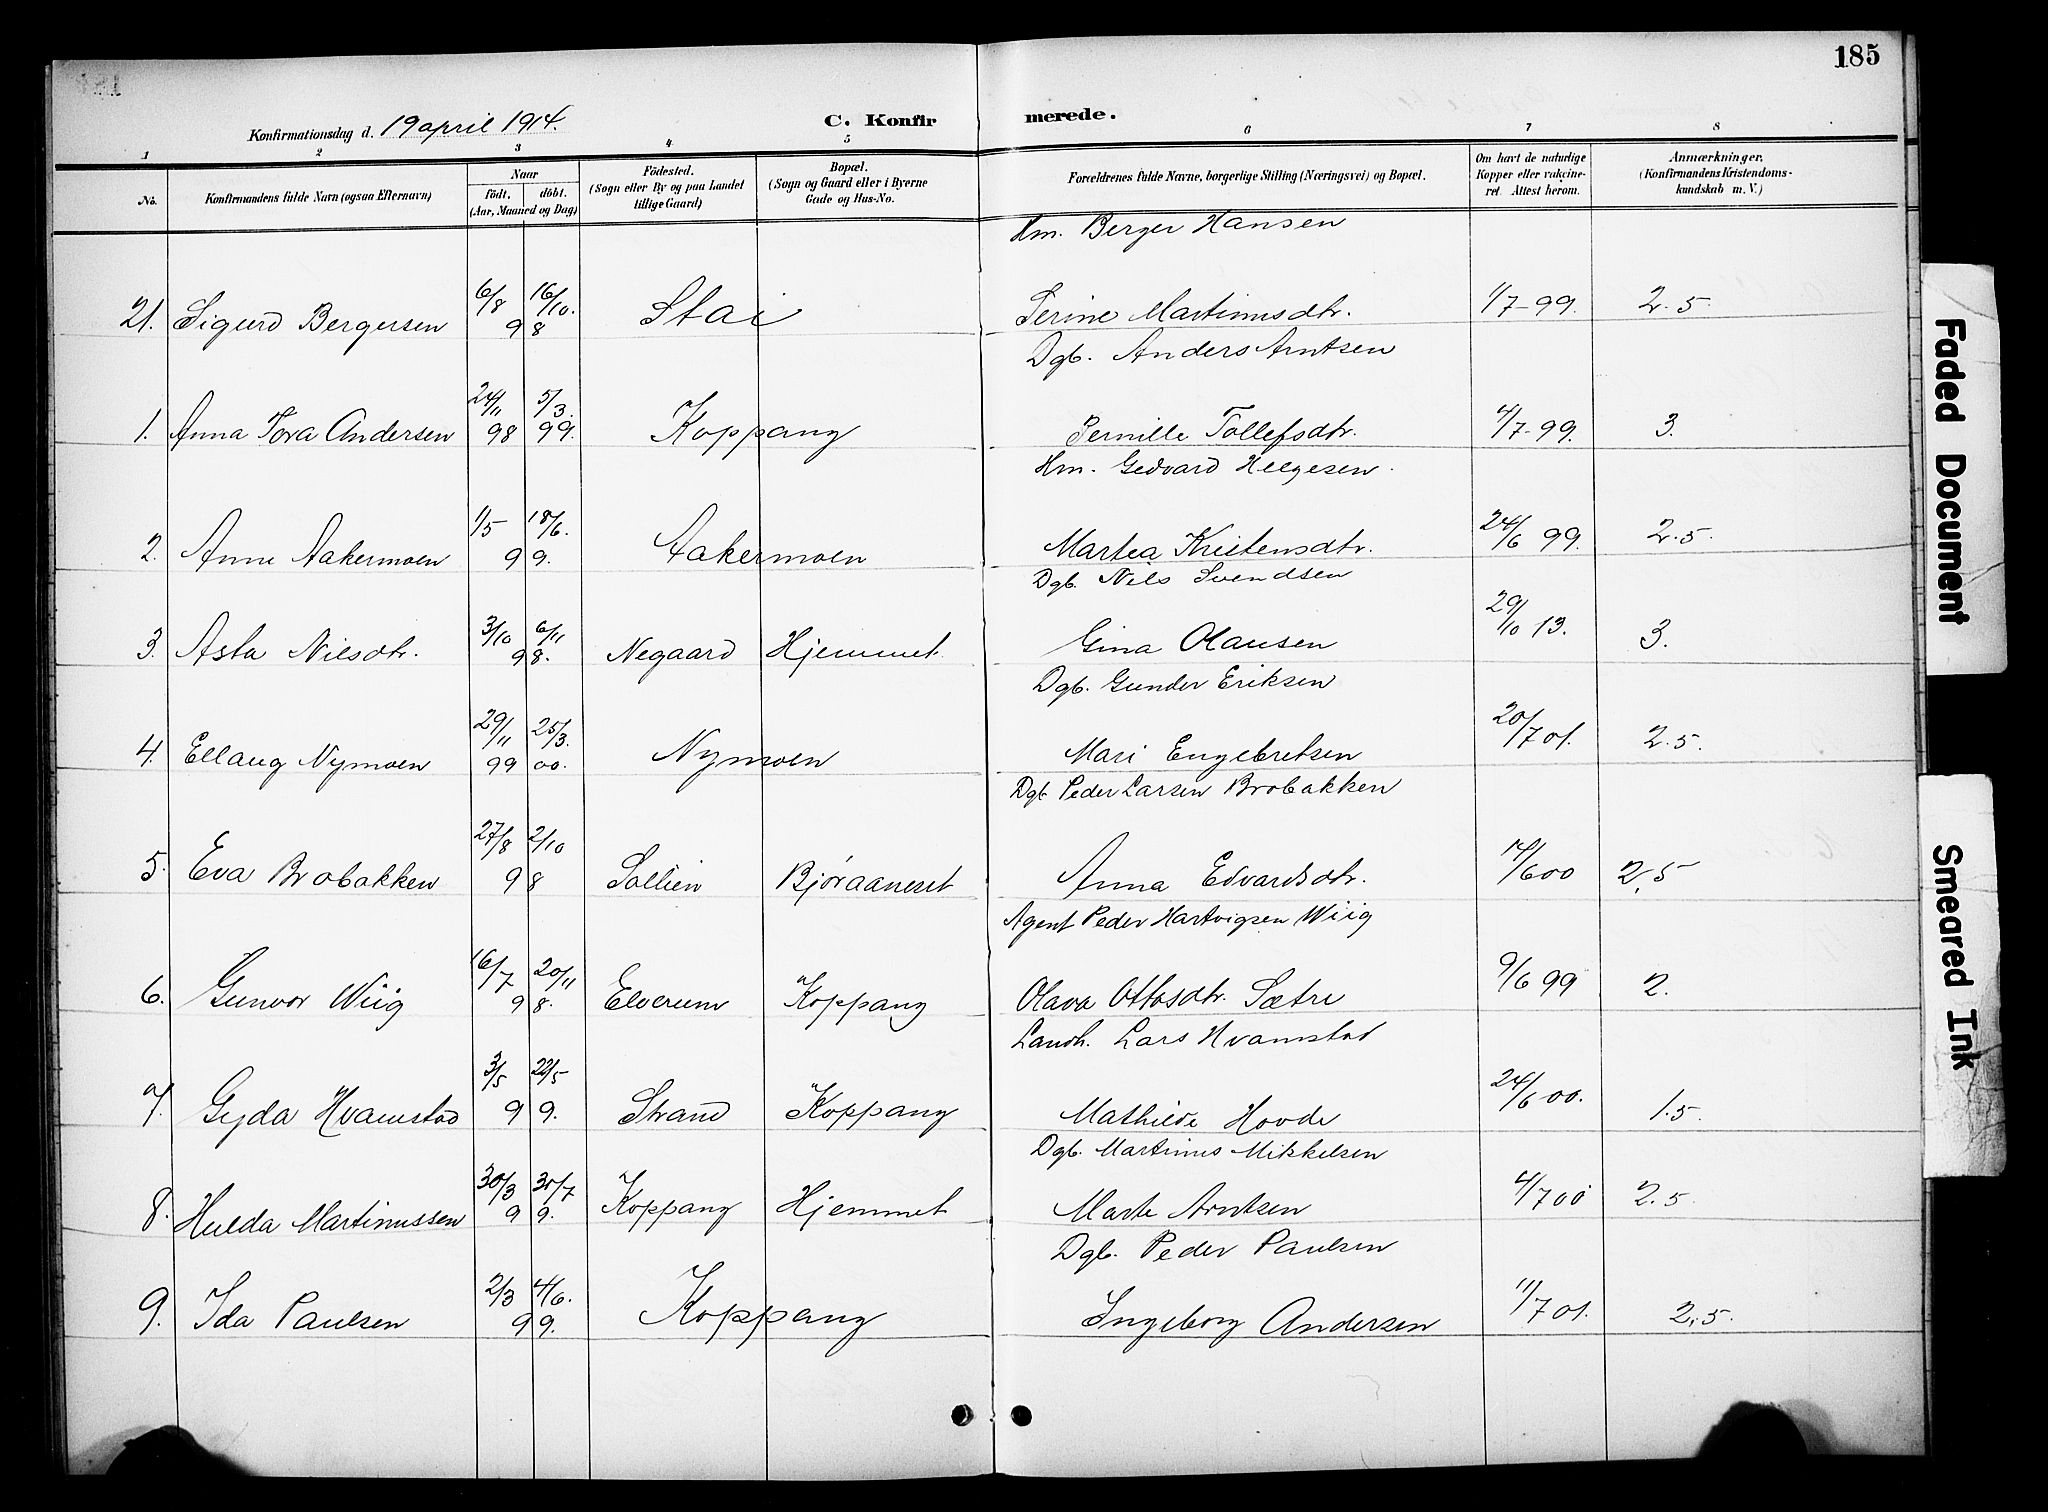 185
Konfirmationsdag d. 19 april 1914.
C. Konfirmerede.
1 2 3 4 5 6 7 8
No.
Konfirmandens fulde Navn (ogsaa Efternavn)
Naar
födt, döbt.
(Aar, Maaned og Dag)
Födested.
(Sogn eller By og paa Landet
tillige Gaard)
Bopæl.
(Sogn og Gaard eller i Byerne
Gade og Hus-No.
Forældrenes fulde Navne, borgerlige Stilling (Næringsvei) og Bopæl.
Om havt de naturlige
Kopper eller vakcine-
ret. Attest herom.
Anmærkninger.
(Konfirmandens Kristendoms-
kundskab m. V.)
Hm. Berger Hansen
21. Sigurd Bergersen 6/8 16/10. 98 Stai Serine Martinusdtr. 1/7-99. 2.5.
Dgb. Anders Arntsen
1. Anna Tora Andersen 24/11 98 5/3. 99. Koppang Pernille Tollefsdtr. 4/7-99. 3.
Hm. Gedvard Helgesen.
2. Anne Aakermoen 1/5 18/6. 99. Aakermoen Martea Kristensdtr. 24/6 99. 2.5.
Dgb. Nils Svendsen
3. Asta Nilsdtr. 3/10 6/11 98. Negaard Hjemmet Gina Olausen 29/10 13. 3.
Dgb. Gunder Eriksen
4. Ellaug Nymoen 29/11 99 25/3. 00. Nymoen Mari Engebretsen 20/7 01. 2.5.
Dgb Peder Larsen Brobakken
5. Eva Brobakken 27/8 2/10 98 Sollien Bjøraaneset Anna Edvardsdtr. 14/6 00 2.5
Agent Peder Hartvigsen Wiig
6. Gunvor Wiig 16/7 20/11 98. Elverum Koppang Olava Ottosdtr. Sætre 9/6 99 2.
Landh. Lars Hvamstad
7. Gyda Hvamstad 3/5 22/5 99. Strand Koppang Mathilde Hovde 24/6 00. 1.5.
Dgb. Martinus Mikkelsen
8. Hulda Martinussen 30/3 30/7 99. Koppang Hjemmet Marte Arntsen 4/7 00 2.5.
Dgb. Peder Paulsen
9. Ida Paulsen 2/3 4/6. 99. Koppang Ingeborg Andersen 11/7 01. 2.5.
Faded Document
Smeared Ink